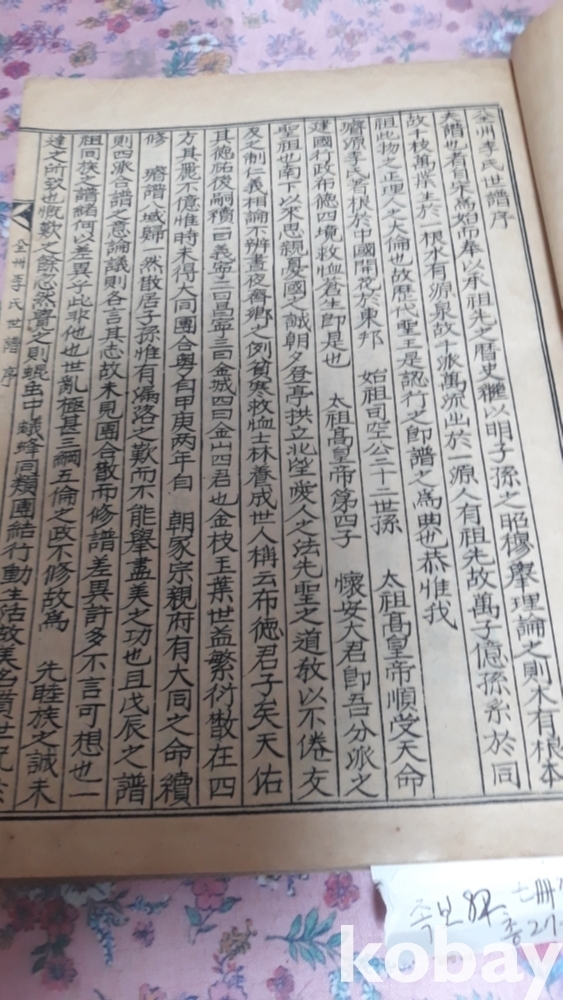 全州李氏世譜序
夫譜也者自宋爲始而奉以承祖先之曆史繼以明子孫之昭穆擧理論之則木有根本
故千枝萬葉生於一根水有源泉故千派萬流出於一源人有祖先故萬子億孫系於同
祖此物之正理人之大倫也故歷代聖王是認行之卽譜之爲典也恭惟我
璿源李氏者根於中國開花於東邦 始祖司空公二十二世孫 太祖高皇帝順受天命
建國行政布德四境救恤蒼生卽是也 太祖高皇帝第四子 懷安大君卽吾分派之
聖祖也南下以來思親憂國之誠朝夕登亭拱立北望愛人之法先聖之道敎以不倦友
及之制仁義相論不辨晝夜喬鄕之例貧寒救恤士林養成世人稱云布德君子矣天佑
其德祐後嗣續一曰義寧二曰昌寧三曰金城四曰金山四君也金枝玉葉世益繁衍散在四
方其麗不億惟時未得大同團合粤自甲庚两年自 朝家宗親府有大同之命續
修 璿譜 城歸 然散居子孫惟有漏落之歎而不能擧盡美之功也且戊辰之譜
則四派合譜之意論議則各言其志故未見團合散而修譜差異許多不言可想也一
祖同族之譜緖何以差異乎此非他也世亂極甚三綱五倫之政不修故爲 先睦族之誠未
達之所致也慨歎之餘忿然賁之則蜫虫中蟻蜂同類團結行動生活故美名
全州李氏世譜 序
족보
kobay